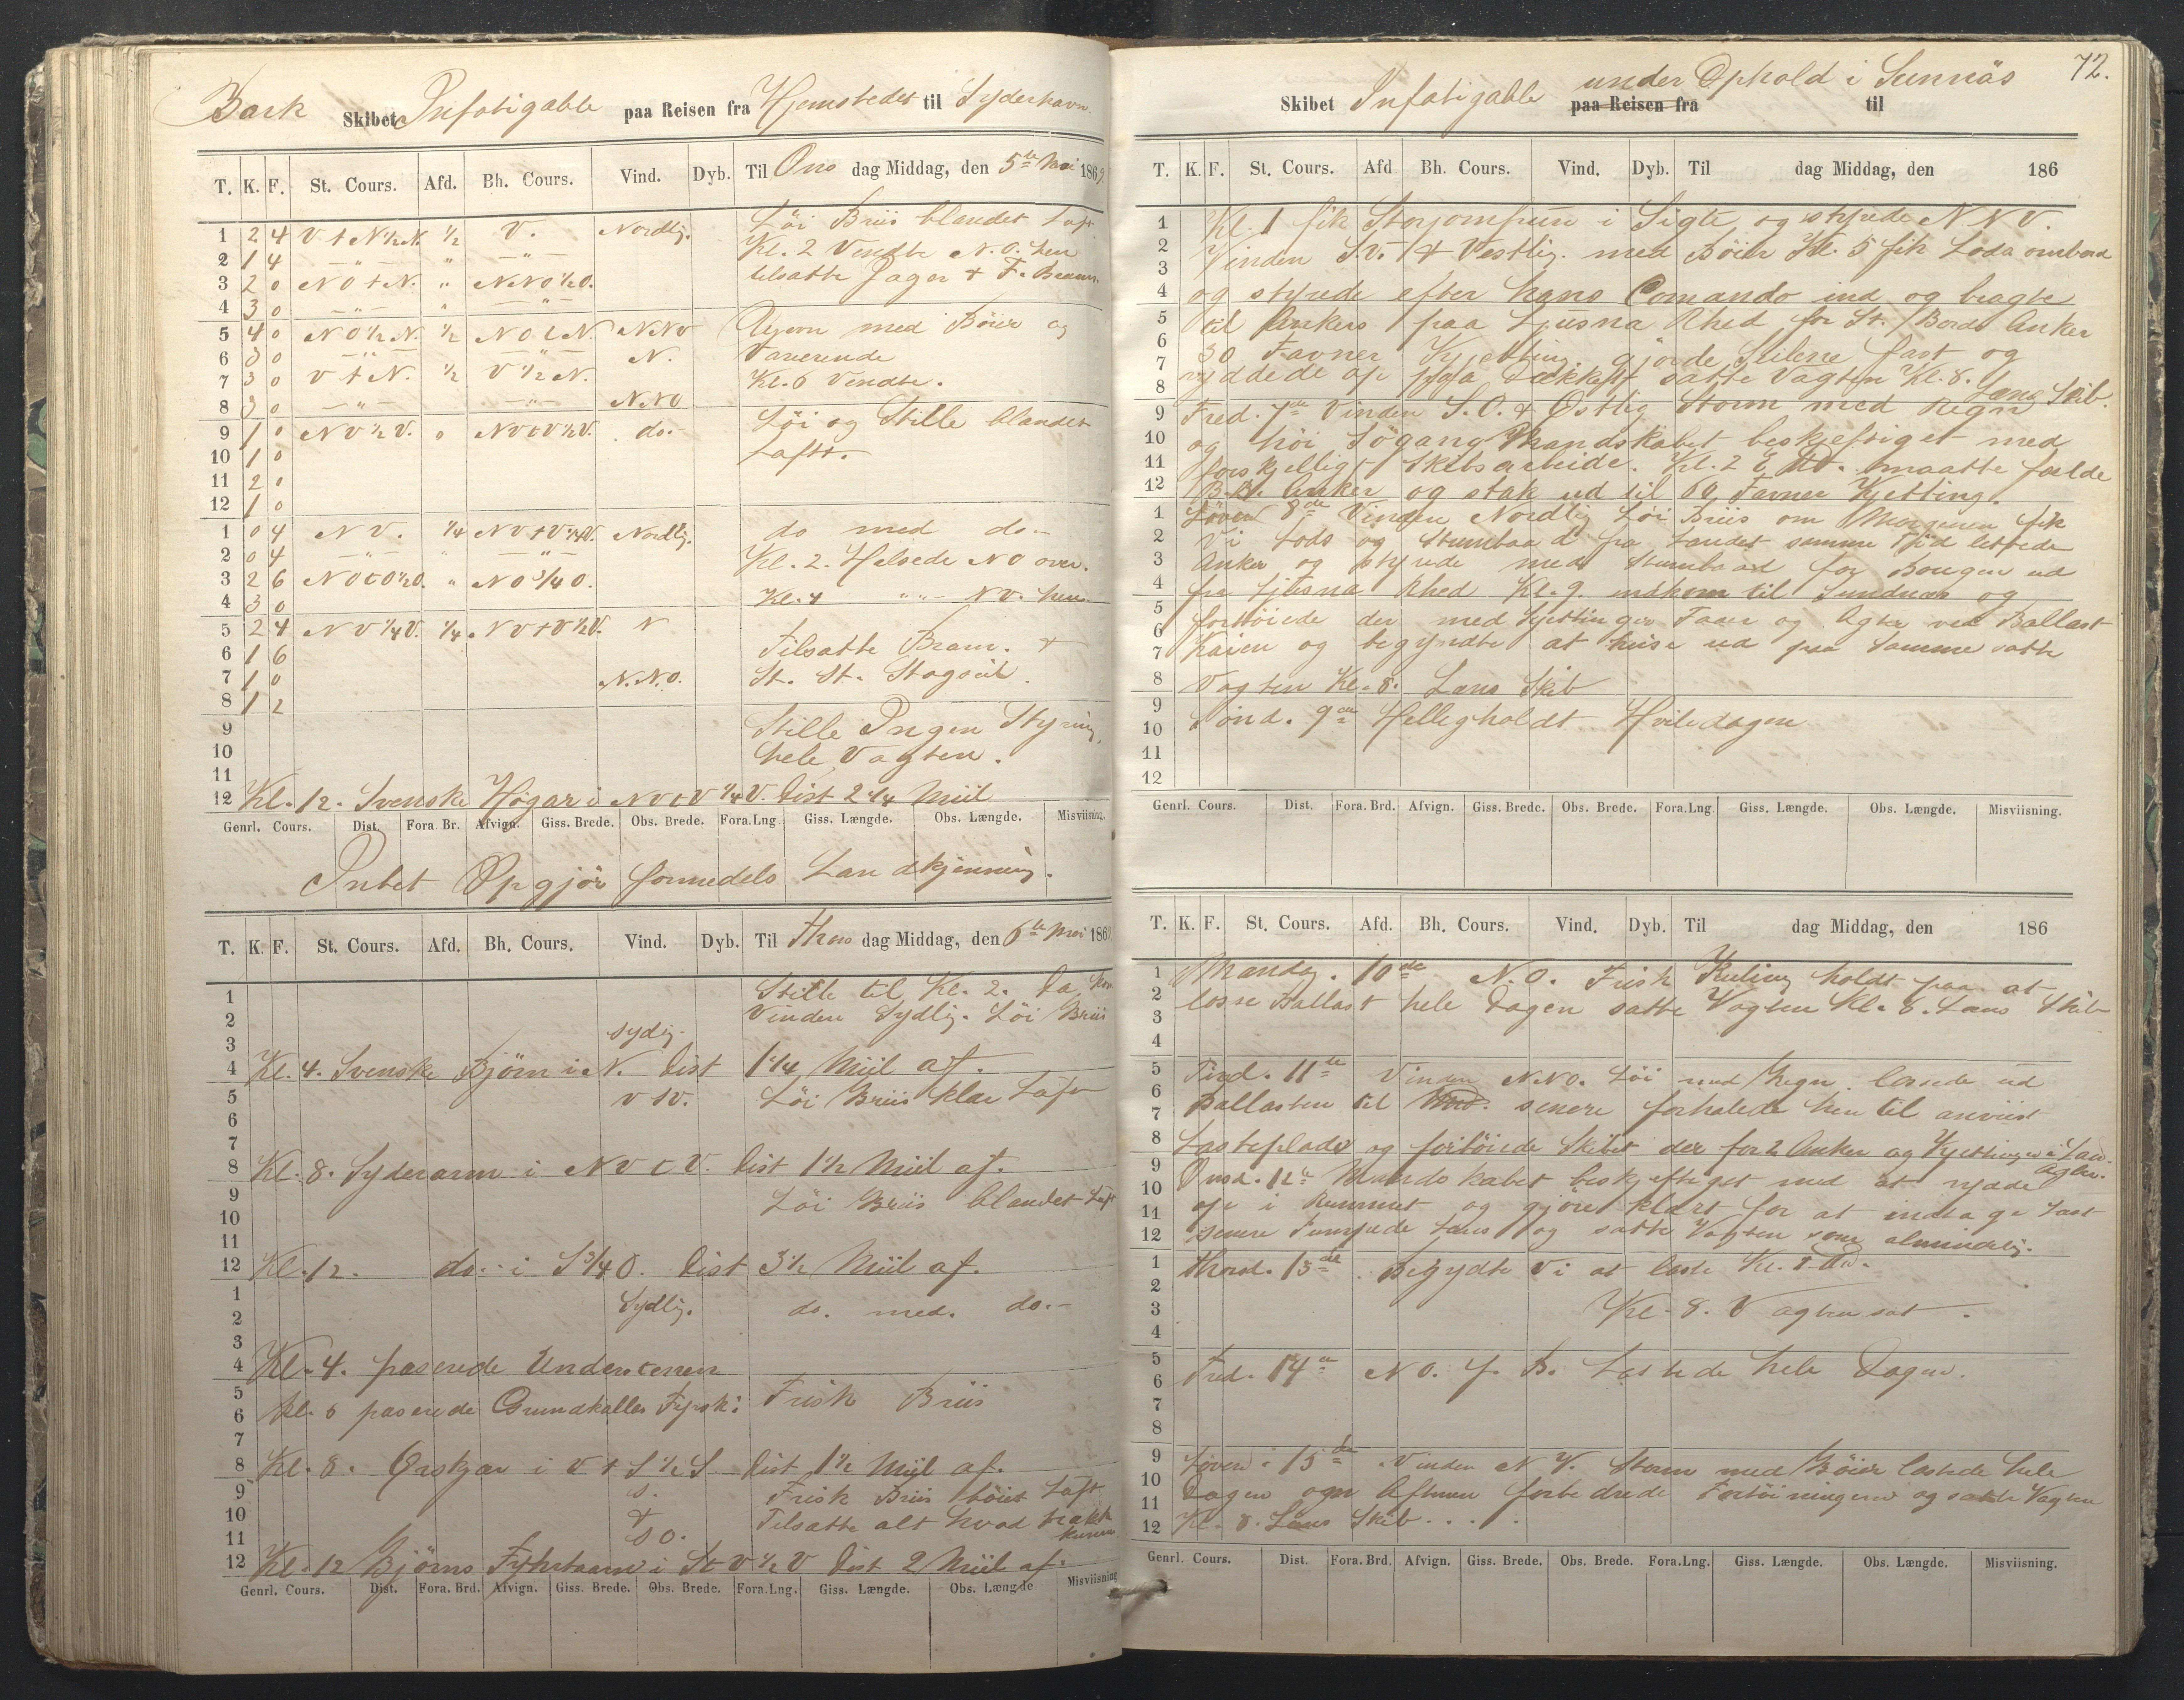 Bark Skibet Infatigable paa Reisen fra Hjemstedet til Syderhavn
T. K. F. St. Cours. Afd. Bh. Cours. Vind. Dyb. Til Ons dag Middag, den 5te Mai 1869
Löi Briis blandet Luft
1 2 4 V t N ½ N. ½ V. Nordlig.
Kl. 2 Vendte N. O. hen
2 1 4 — " — " — " —
tilsatte Jager & F. Bram.
3 2 0 N O t N. " N.N.O ½ O.
4 3 0 — " — " — " —
5 4 0 N O ½ N. ½ N O t N. N.N.V med Böier og
6 3 0 — " — — " — N. Varierende
7 3 0 V t N. ½ V ½ N. Kl. 6 Vendte.
8 3 0 — " — — " — N.N.O
9 1 0 N V ½ V. 0 N V t V ½ V. do.- Löi og Stille blandet
10 1 0 Luft.-
11 2 0
12 1 0
1 0 4 N V. ¼ N V t V ¼ V. Nordlig. do med do.-
2 0 4 — " — " — " — Kl. 2. Helsede N O over.
3 2 6 N O t O ½ O. " N O ¾ O.
4 3 0 Kl. 4 " " - N V. hen
5 2 4 N V ¼ V. ¼ N V t V ½ V. N
6 1 6 Tilsatte Bram. &
7 1 0 N.N.O. St. St. Stagseil.
8 1 2
9 Stille Ingen Styring,
10 hele Vagten.
11
12 Kl. 12. Svenske Högar i N V t V ¼ V. Dist 2 ¼ Miil
Genrl. Cours. Dist. Fora. Br. Afvign. Giss. Brede. Obs. Brede. Fora.Lng Giss. Længde. Obs. Længde. Misviisning.
Intet Opgjör formedels Landkjenning.
T. K. F. St. Cours. Afd. Bh. Cours. Vind. Dyb. Til Thors dag Middag, den 6te Mai 186
1 Stille til Kl. 2. Da kom
2 Vinden Sydlig. Löi Briis
3 Sydlig.
4 Kl. 4. Svenske Björn i N. Dist 1 ¼ Miil af.
5 Löi Briis klar Luft
6
7
8 Kl. 8. Syderarm i N V t V. Dist 1 ½ Miil af.
9 Löi Briis blandet Luft
10
11
12 Kl. 12. do.- i S ¾ O. Dist 3 ½ Miil af.
1 Sydlig. do. med. do.-
2
3
4 Kl. 4. paserede Understenen
5 Kl. 6 paserede Grundkallen Fyrski: Frisk Briis
6
7
8 Kl. 8. Örskjær i V t S ½ S Dist 1 ½ Miil af.
9 S. Frisk Briis Luft
10 t Tilsatte alt hvad trække
11 S O. kunne.
12 Kl. 12 Björns Fyhrtaarn i St V ½ V Dist 2 Miil af.
Genrl. Cours. Dist. Fora. Brd. Afvign. Giss. Brede. Obs. Brede. Fora.Lng. Giss. Længde. Obs. Længde Misviisning
72.
Skibet Infatigable paa Reisen fra under Ophold i Sunnäs til
T. K. F. St. Cours. Afd Bh. Cours. Vind. Dyb. Til dag Middag, den 186
1 Kl. 1 fik Storjomfrun i Sigte og styrede N N V.
2 Vinden S.V. & Vestlig. med Böier Kl. 5 fik Lods ombord
3
4 og styrede efter hans Comando ind og bragte
5 til Ankers paa Ljusna Rhed for St. Bords Anker
6 30 Favner Kjetting. gjorde Seilene fast og
7 ryddede op paa Dækket satte Vagten Kl. 8.
8 Læns Skib.
9 Fred. 7de Vinden S.O. & Östlig Storm med Regn
10 og höi Sögang Mandskabet beskjeftiget med
11 forskjelligt Skibsarbeide. Kl. 2 E. Md. maatte falde
12 B.B. Anker og stak ud til 60 Favner Kjetting.
1 Löver 8de Vinden Nordlig Löi Briis om Morgenen fik
2 Vi Lods og Stumbaad fra Landet samme Tid lettede
3 Anker og styrede med Stumbaad for Bougen ud
4 fra Ljusna Rhed Kl. 9. indkom til Sundnæs og
5 fortöiede der med Kjettinger Foran og Agter ved Ballast
6
7 Kaien og begyndte at hive ud paa samme satte
8 Vagten Kl. 8. Læns Skib
9 Sönd. 9de Helligholdt Hviledagen
10
11
12
Genrl. Cours. Dist. Fora. Brd. Afvign. Giss. Brede. Obs. Brede. Fora.Lng Giss. Længde. Obs. Længde. Misviisning.
T. K. F. St. Cours. Afd. Bh. Cours. Vind. Dyb. Til dag Middag, den 186
1 Mandag. 10de N.O. Frisk Kuling holdt paa at
2 losse Ballast hele Dagen satte Vagten Kl. 8. Læns Skib
3
4
5 Tirsd. 11te Vinden N.N.O. Löi med Regn. lossede ud
6 Ballasten til senere forhalede hen til anviist
7
8 Lasteplads og fortöiede Skibet der for 2 Anker og Kjettinger i Land
9 Agter.
Onsd. 12te Mandskabet beskjeftiget med at rydde
10 op i Rummet og gjöre klart for at indtage Last
11
12 senere Pumpede læns og satte Vagten som almindelig.
1 Thorsd. 13de Begydte Vi at laste
2
3 Kl. 8. Vagten sat.
4
5 Fred. 14de N O. f. B. Lastede hele Dagen.
6
7
8
9 Löver. 15de Vinden N V. Storm med Böier lastede hele
10 Dagen om Aftenen forbedrede Fortöiningerne og satte Vagten
11
12 Kl. 8. Læns Skib. . . .
Genrl. Cours. Dist. Fora. Brd. Afvign. Giss. Brede. Obs. Brede. Fora.Lng. Giss. Længde. Obs. Længde. Misviisning.